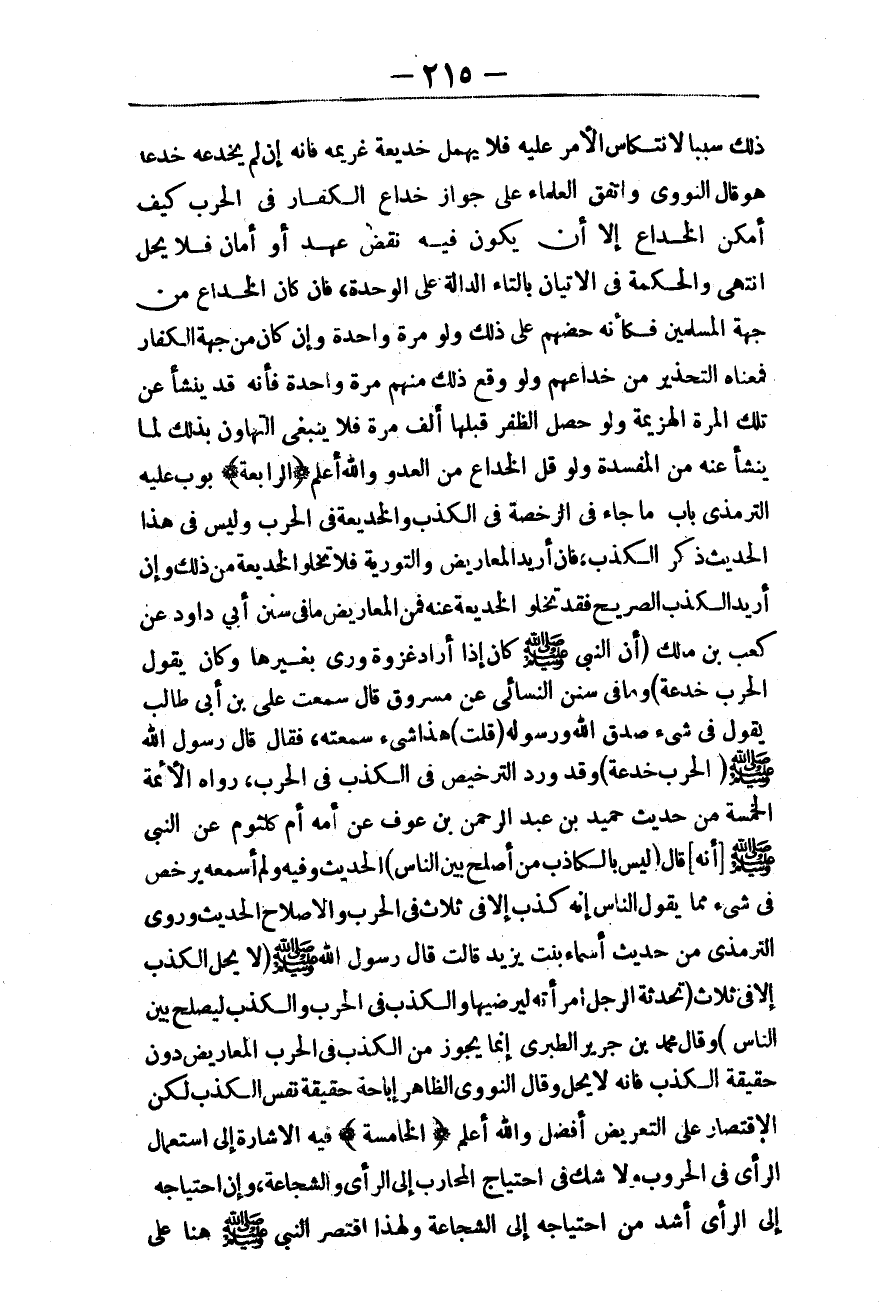 – ٢١٥ –
ذلك سببا لانتكاس الأمر عليه فلا يهمل خديعة غريمه فانه إن لم يخدعه خدعا
هو قال النووى واتفق العلماء على جواز خداع الكفار فى الحرب كيف
أمكن الخداع إلا أن يكون فيه نقض عهد أو أمان فلا يحل
انتهى والحكمة فى الاتيان بالتاء الدالة على الوحدة، فان كان الخداع من
جهة المسلمين فكأنه حضهم على ذلك ولو مرة واحدة وإن كان من جهة الكفار
فمعناه التحذير من خداعهم ولو وقع ذلك منهم مرة واحدة فأنه قد ينشأ عن
تلك المرة الهزيمة ولو حصل الظفر قبلها ألف مرة فلا ينبغى التهاون بذلك لما
ينشأ عنه من المفسدة ولو قل الخداع من العدو والله أعلم ﴿الرابعة﴾ بوب عليه
الترمذى باب ما جاء فى الرخصة فى الكذب والخديعة فى الحرب وليس فى هذا
الحديث ذكر الكذب، فان أريد المعاريض والتورية فلا تخلو الخديعة من ذلك وإن
أريد الكذب الصريح فقد تخلو الخديعة عنه فمن المعاريض مافى سنن أبي داود عن
كعب بن مالك (أن النبي ﷺ كان إذا أراد غزوة ورى بغيرها وكان يقول
الحرب خدعة) ومافى سنن النسائى عن مسروق قال سمعت على بن أبى طالب
يقول فى شىء صدق الله ورسوله (قلت) هذا شىء سمعته، فقال قال رسول الله
ﷺ (الحرب خدعة) وقد ورد الترخيص فى الكذب فى الحرب، رواه الأئمة
الخمسة من حديث حميد بن عبد الرحمن بن عوف عن أمه أم كلثوم عن النبي
ﷺ [أنه] قال (ليس بالكاذب من أصلح بين الناس) الحديث وفيه ولم أسمعه يرخص
فى شىء مما يقول الناس إنه كذب إلا فى ثلاث فى الحرب والاصلاح الحديث وروى
الترمذى من حديث أسماء بنت يزيد قالت قال رسول الله ﷺ (لا يحل الكذب
إلا فى ثلاث (تحدثة الرجل امرأته ليرضيها والكذب فى الحرب والكذب ليصلح بين
الناس) وقال محمد بن جرير الطبرى إنما يجوز من الكذب فى الحرب المعاريض دون
حقيقة الكذب فانه لا يحل وقال النووى الظاهر إباحة حقيقة نفس الكذب لكن
الإقتصار على التعريض أفضل والله أعلم ﴿ الخامسة ﴾ فيه الاشارة إلى استعمال
الرأى فى الحروب ولا شك فى احتياج المحارب إلى الرأى والشجاعة، وإن احتياجه
إلى الرأى أشد من احتياجه إلى الشجاعة ولهذا اقتصر النبي ﷺ هنا على